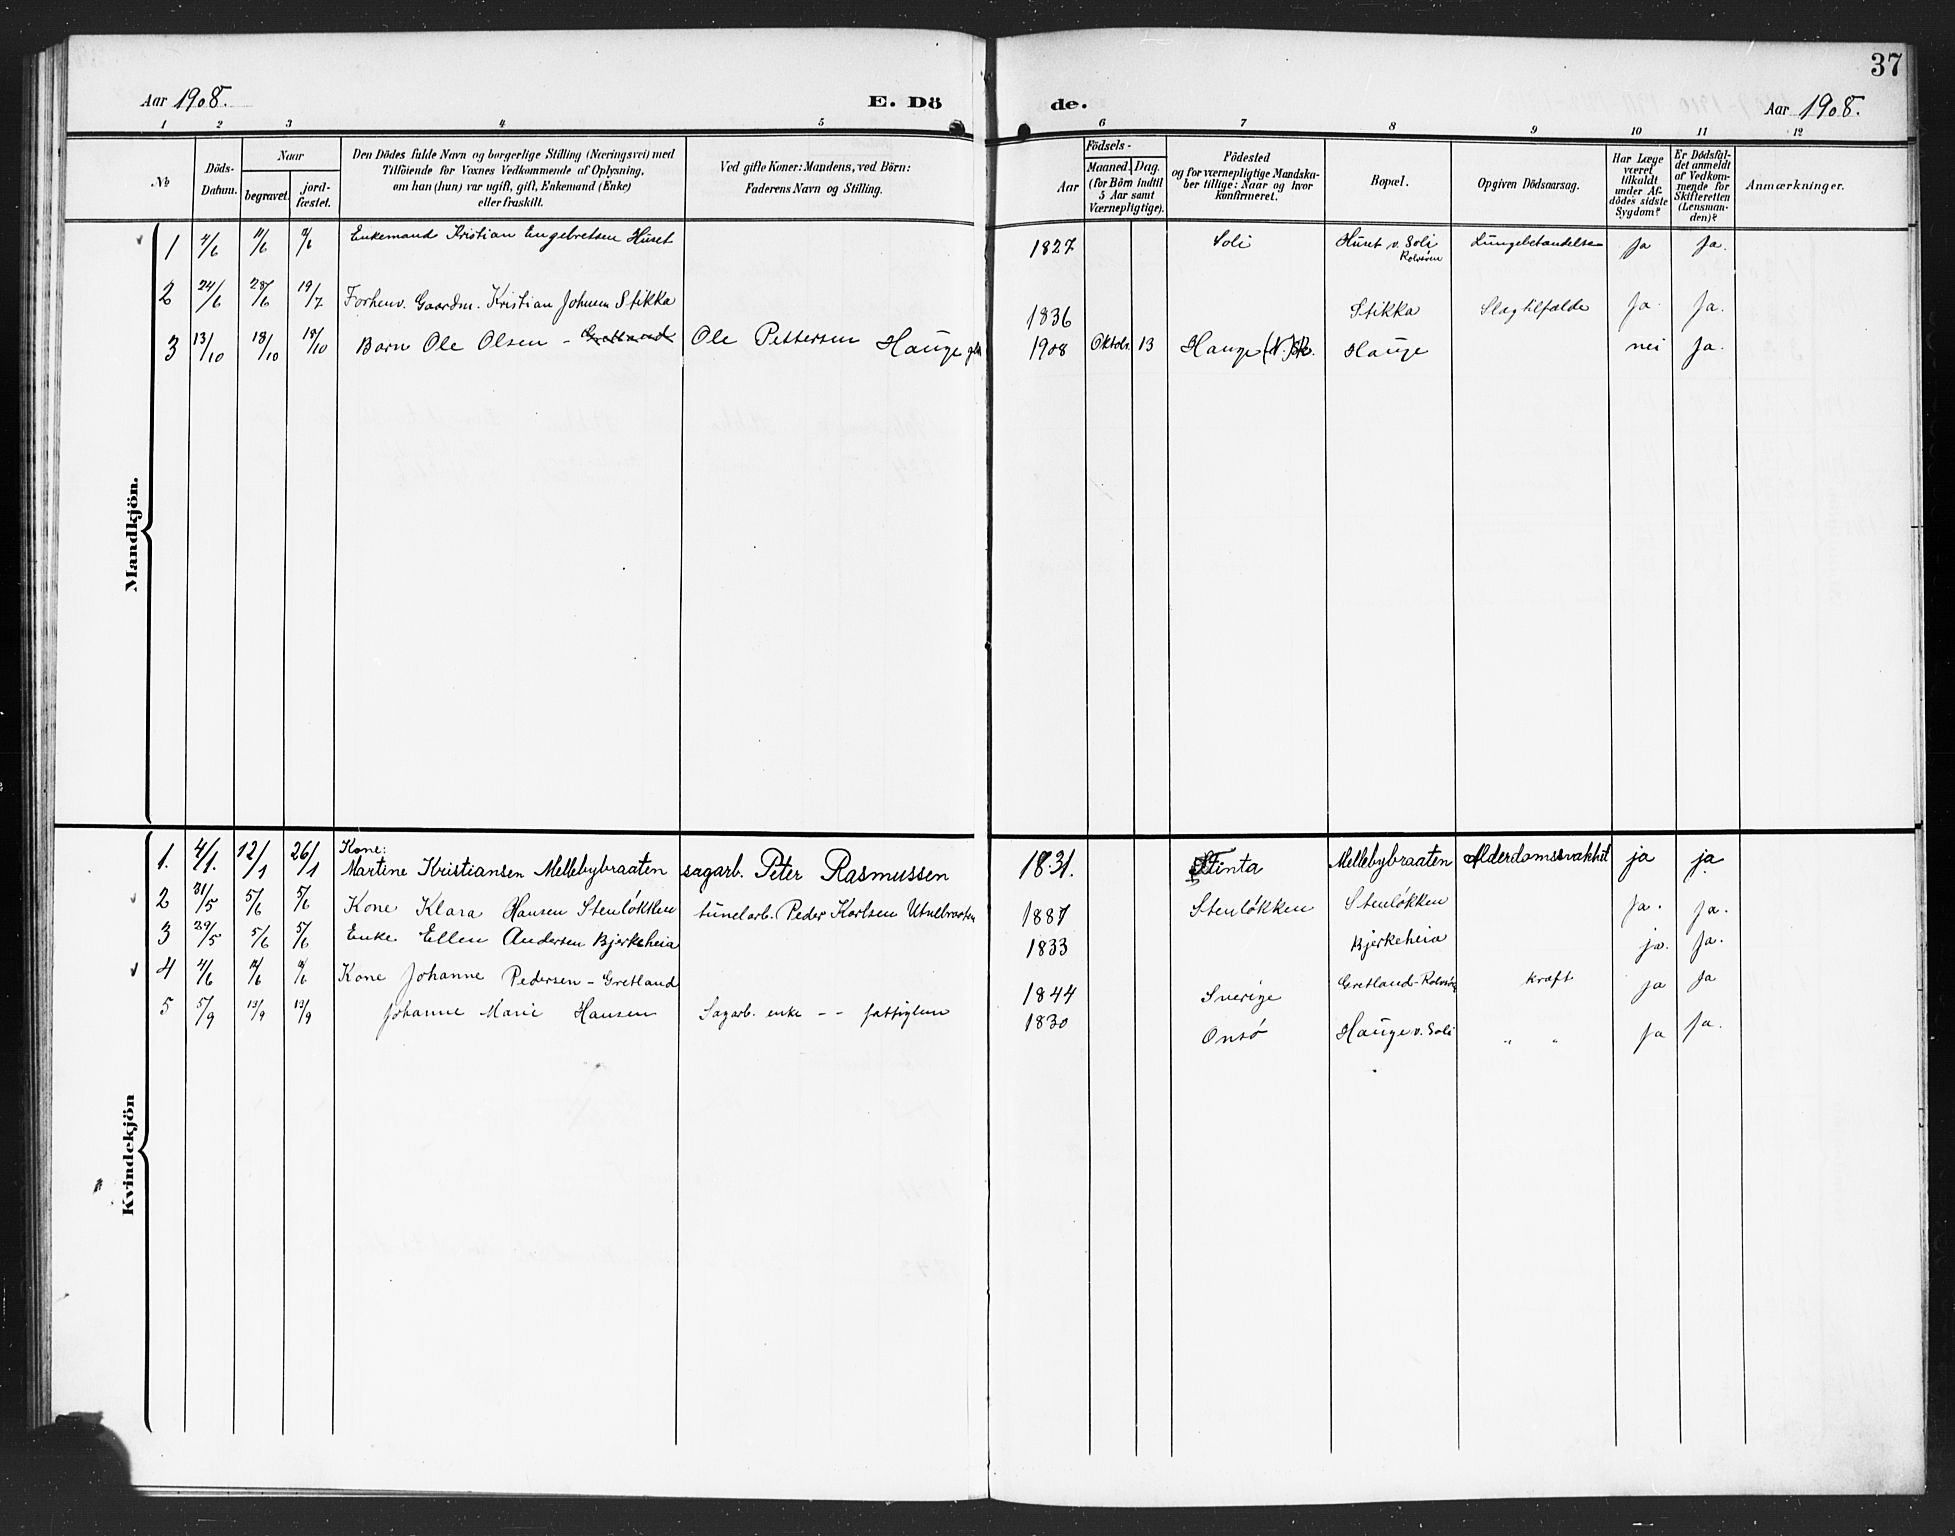 37
Aar 1908. E. Dö de. Aar 1908.
1 2 3 4 5 6 7 8 9 10 11 12
No
Döds-Datum.
Naar
begravet.
jord-fæstet.
Den Dödes fulde Navn og borgerlige Stilling (Næringsvei) med
Tilföiende for Voxnes Vedkommende af Oplysning,
om han (hun) var ugift, gift, Enkemand (Enke)
eller fraskilt.
Ved gifte Koner: Mandens, ved Börn:
Faderens Navn og Stilling.
Födsels-
Aar
Maaned. Dag.
(for Börn indtil
5 Aar samt
Værnepligtige).
Födested
og for værnepligtige Mandska-
ber tillige: Naar og hvor
konfirmeret.
Bopæl.
Opgiven Dödsaarsag.
Har Læge
været
tilkaldt
under Af-
dödes sidste
Sygdom?
Er Dödsfal-
det anmeldt
af Vedkom-
mende for
Skifteretten
(Lensman-
den)?
Anmærkninger.
Mandkjön.
1 4/6 11/6 11/6 Enkemand Kristian Engebretsen Huset 1827 Soli Huset v. Soli Rolvsöen Lungebetændelse ja ja.
2 24/6 28/6 19/7 Forhenv. Gaardm. Kristian Johnsen Stikka 1836 Stikka Slagtilfælde ja ja.
3 13/10 18/10 18/10 Barn Ole Olsen - Ole Pettersen Hauge 1908 Oktobr. 13 Hauge Hauge nei ja.
Kvindekjön
1. 4/1. 12/1 26/1 Kone: Martine Kristiansen Mellebybraaten sagarb. Peter Rasmussen 1831. Mellebybraaten Alderdomssvakhet ja ja.
2 31/5 5/6 5/6 Kone Klara Hansen Stenløkken tunelarb. Peder Karlsen 1887 Stenløkken Stenløkken ja. ja.
3 29/5 5/6 5/6 Enke Ellen Andersen Bjerkeheia 1833 Bjerkeheia ja. ja.
4 4/6 11/6 Kone Johanne Pedersen - Gretland 1844 Sverige Gretland-Rolvsøy kræft ja ja
5 5/9 13/9 13/9 Johanne Marie Hansen Sagarb. enke - - fattiglem 1830 Onsø Hauge v. Soli " " ja ja.